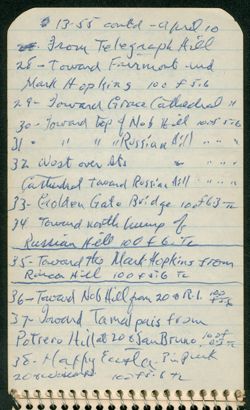 $13-55 contd - April 10
From Telegraph Hill
28 - Toward Fairmont and
Mark Hopkins 100 f 5.6
29 - Toward Grace Cathedral "
30 - Toward top of Nob Hill 100 f 5.6
31 " " " "Russian Hill " " "
32 West over
Cathedral toward Russian Hill " " "
33 - Golden Gate Bridge 100 f 6.3 Tc
34. Toward north hump of
Russian Hill 100 f 6. Tc
35 - Toward the Mark Hopkins from
Rincon Hill 100 f 5.6 Tc
36 - Toward Nob Hill from 20 & R.I. 100
37 - Toward Tamalpais from
Potrero Hill at 20 & San Bruno, 100 f
38 - Happy Easter in
100 f 5.6 Tc